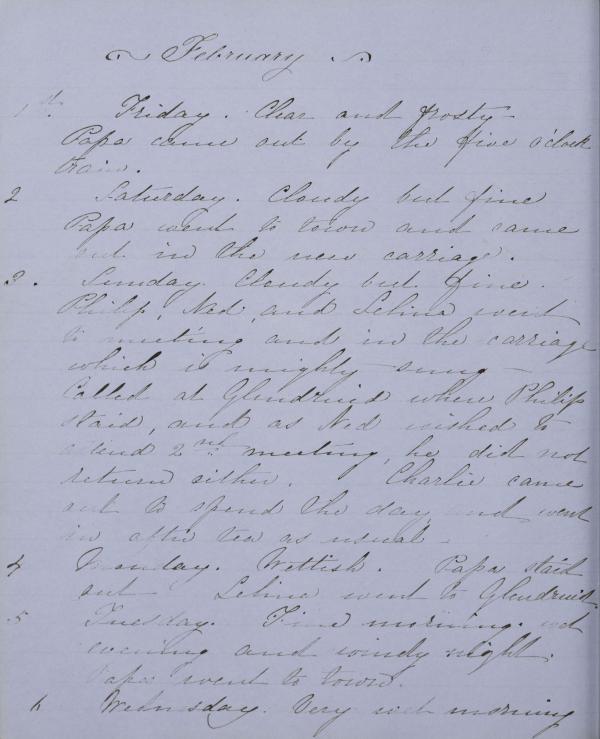 February
1st. Friday. Clear and frosty-
Papa came out by the five o'clock
train.
2 Saturday. Cloudy but fine
Papa went to town and came
out in the new carriage.
3. Sunday. Cloudy but fine.
Philip, Ned, and Selina went
to meeting and in the carriage
which is mighty snug -
Called at Glendruid where Philip
staid, and as Ned wished to
attend 2nd meeting, he did not
return either. Charlie came
out to spend the day and went
in after tea as usual -
4 Monday. Wettish. Papa staid
out Selina went to Glendruid.
5 Tuesday. Fine morning. wet
evening and windy night.
Papa went to town.
6 Wednesday. Very wet morning